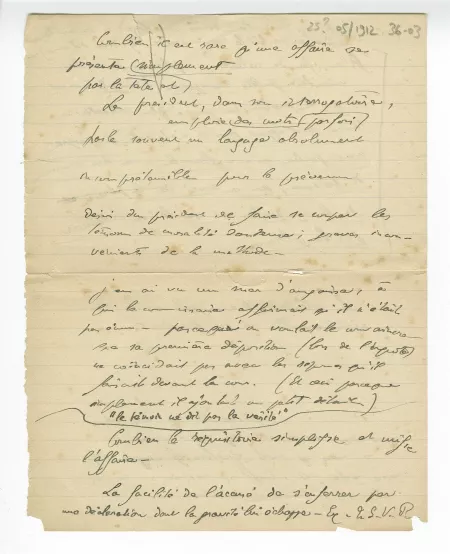 25? 05/1912 36-03
Combien il est rare qu'une affaire se
présente (simplement
par la tête et)
Le président, dans son interrogatoire,
emploie des mots (parfois)
parle souvent un langage absolument
incompréhensibles pour le prévenu
Désir du président de faire se couper les
témoins de moralité ; graves incon-
vénients de la méthode -
J'en ai vu un suer d'angoisse ; à
lui le commissaire affirmait qu'il n'était
- parce qu'on voulait le convaincre
que sa première déposition (lors de l'enquête)
ne coïncidait pas avec les réponses qu'il
faisait devant la cour. (Et ceci parce que
simplement il ajoutait un petit détail)
"le témoin ne dit pas la vérité"
Combien le réquisitoire simplifie et
l'affaire -
La facilité de l'accusé de s'enferrer par
une déclaration dont la gravité lui échappe - Ex -